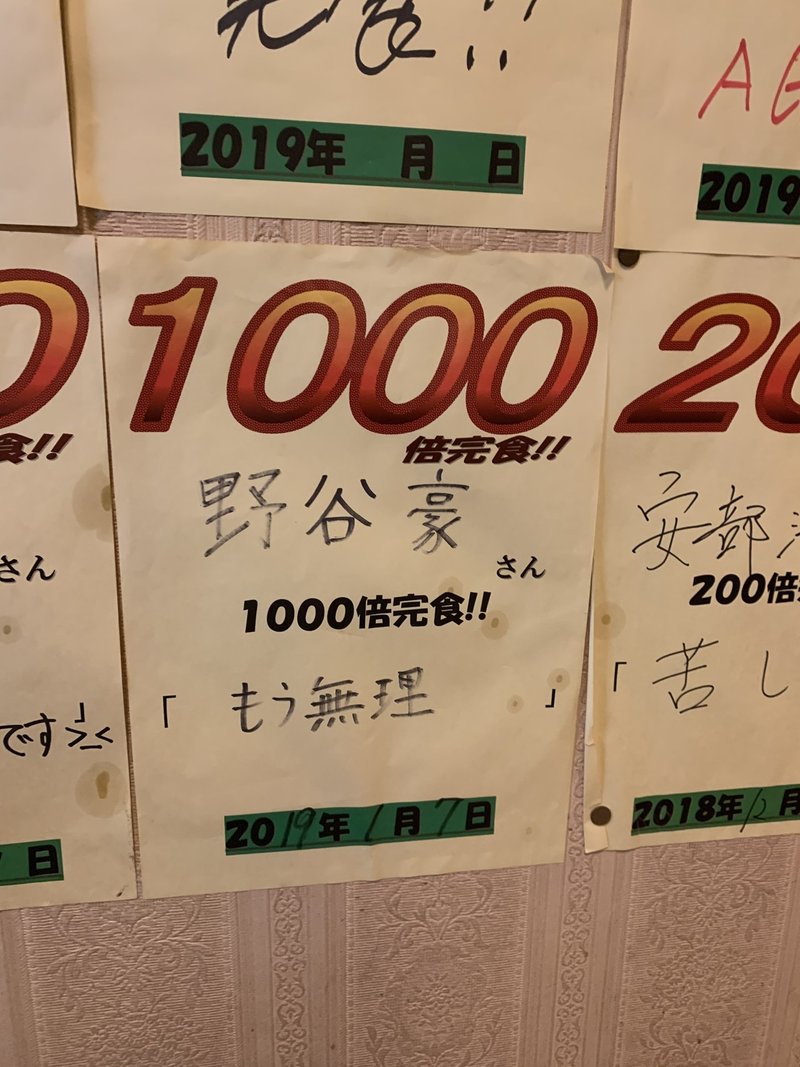 完食!!
2019年 月 日
2019
1000
倍完食!!
野谷豪
さん
1000倍完食!!
「もう無理」
2019年1月7日
食!!
さん
です>_<」
日
20
安部
200倍
「苦し
2018年12月